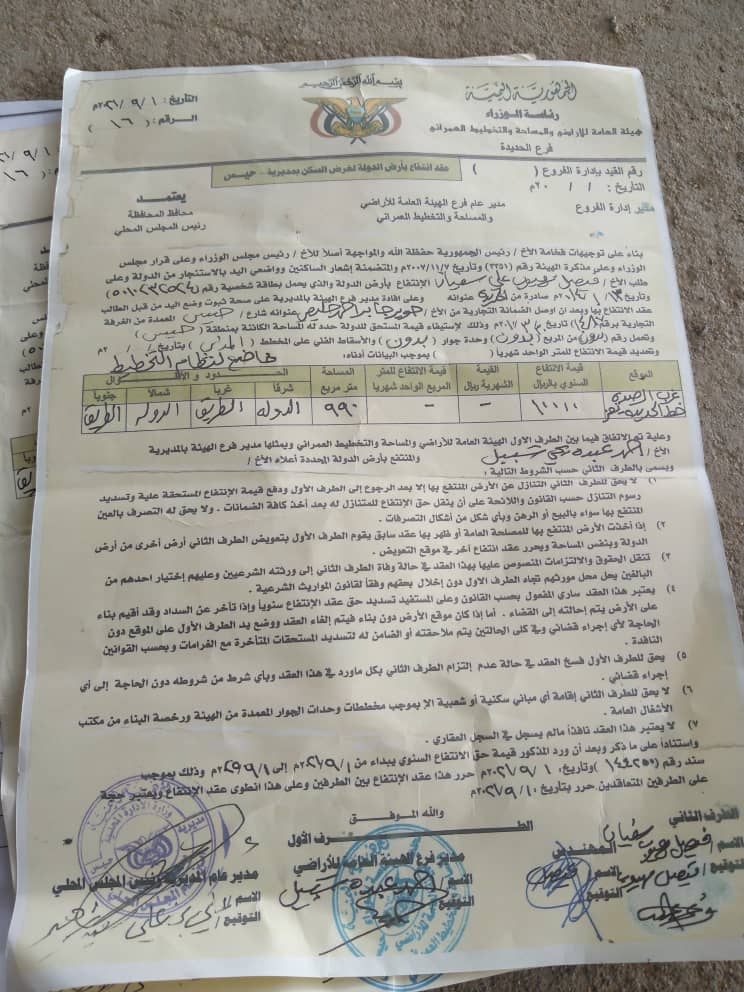 بسم الله الرحمن الرحيم
الجمهورية اليمنية
رئاسة الوزراء
الهيئة العامة للأراضي والمساحة والتخطيط العمراني
فرع الحديدة
التاريخ: ٢٠٢١/٩/١م
الرقم: ( ١٦ )
رقم القيد بإدارة الفروع ( )
التاريخ: / / ٢٠م
عقد انتفاع بأرض الدولة لغرض السكن بمديرية - حيس
مدير إدارة الفروع
مدير عام فرع الهيئة العامة للأراضي
والمساحة والتخطيط العمراني
يعتمد
محافظ المحافظة
رئيس المجلس المحلي
بناء على توجيهات فخامة الأخ / رئيس الجمهورية حفظة الله والمواجهة أصلاً للأخ / رئيس مجلس الوزراء وعلى قرار مجلس
الوزراء وعلى مذكرة الهيئة رقم (٣٣٥١) وتاريخ ٢٠٠٧/١١/٧م والمتضمنة إشعار الساكنين وواضعي اليد بالاستئجار من الدولة وعلى
طلب الأخ / فيصل مهيوب علي سفيان الإنتفاع بأرض الدولة والذي يحمل بطاقة شخصية رقم
وتاريخ صادرة من الحديدة عنوانه وعلى افادة مدير فرع الهيئة بالمديرية على صحة ثبوت وضع اليد من قبل الطالب
عقد الانتفاع بها وبعد ان اوصل الضمانة التجارية من الأخ / عنوانه شارع / حيس المعمدة من الغرفة
التجارية برقم تاريخ وذلك لإستيفاء قيمة المستحق للدولة حدد له المساحة الكائنة بمنطقة ( حيس )
وتعمل رقم (بدون) من المربع (بدون) وحدة جوار ( بدون ) والاسقاط الفني على المخطط ( ) بتاريخ /
وتحديد قيمة الانتفاع للمتر الواحد شهرياً ( ) بموجب البيانات أدناه: خاضع لنظام التخطيط
الموقع
قيمة الانتفاع السنوي بالريال
القيمة الشهرية ريال
قيمة الانتفاع للمتر المربع الواحد شهريا
المساحة متر مربع
الحدود والأطوال
شرقا
غربا
شمالا
جنوبا
١٠٠١٠
-
-
٩٩٠
الدولة
الطريق
الدولة
الطريق
وعلية تم الإتفاق فيما بين الطرف الأول الهيئة العامة للأراضي والمساحة والتخطيط العمراني ويمثلها مدير فرع الهيئة بالمديرية
الأخ / احمد عبده يحيى شبيل والمنتفع بأرض الدولة المحددة أعلاه الأخ /
ويسمى بالطرف الثاني حسب الشروط التالية :
١) لا يحق للطرف الثاني التنازل عن الأرض المنتفع بها إلا بعد الرجوع إلى الطرف الأول ودفع قيمة الإنتفاع المستحقة علية وتسديد
رسوم التنازل حسب القانون واللائحة على أن ينقل حق الإنتفاع للمتنازل له بعد أخذ كافة الضمانات . ولا يحق له التصرف بالعين
المنتفع بها سواء بالبيع أو الرهن وبأي شكل من أشكال التصرفات .
٢) إذا أخذت الأرض المنتفع بها للمصلحة العامة أو ظهر بها عقد سابق يقوم الطرف الأول بتعويض الطرف الثاني أرض أخرى من أرض
الدولة وبنفس المساحة ويحرر عقد انتفاع آخر في موقع التعويض .
٣) تنتقل الحقوق والالتزامات المنصوص عليها بهذا العقد في حالة وفاة الطرف الثاني إلى ورثته الشرعيين وعليهم إختيار احدهم من
البالغين يحل محل مورثهم تجاه الطرف الاول دون إخلال بحقهم وفقاً لقانون المواريث الشرعية .
٤) يعتبر هذا العقد ساري المفعول بحسب القانون وعلى المستفيد تسديد حق عقد الإنتفاع سنوياً وإذا تأخر عن السداد وقد أقيم بناء
على الأرض يتم إحالته إلى القضاء . أما إذا كان موقع الأرض دون بناء فيتم إلغاء العقد ووضع يد الطرف الأول على الموقع دون
الحاجة لأي إجراء قضائي وفي كلى الحالتين يتم ملاحقته أو الضامن له لتسديد المستحقات المتأخرة مع الغرامات وبحسب القوانين
النافذة .
٥) يحق للطرف الأول فسخ العقد في حالة عدم إلتزام الطرف الثاني بكل ماورد في هذا العقد وبأي شرط من شروطه دون الحاجة إلى أي
إجراء قضائي .
٦) لا يحق للطرف الثاني إقامة أي مباني سكنية أو شعبية الا بموجب مخططات وحدات الجوار المعمدة من الهيئة ورخصة البناء من مكتب
الأشغال العامة .
٧) لا يعتبر هذا العقد نافذاً مالم يسجل في السجل العقاري .
واستناداً على ما ذكر وبعد أن ورد المذكور قيمة حق الانتفاع السنوي يبداء من ٢٠٢١/٩/١م إلى وذلك بموجب
سند رقم (١٤٤٢٥٥) وتاريخ، ٢٠٢١/٩/١م حرر هذا عقد الإنتفاع بين الطرفين وعلى هذا انطوى عقد الإنتفاع ويعتبر حجة
على الطرفين المتعاقدين حرر بتاريخ
والله الموفق
الطرف الثاني
الاسم فيصل مهيوب سفيان
التوقيع
المهندس
الاسم
التوقيع
الطرف الأول
مدير فرع الهيئة العامة للأراضي
الاسم احمد عبده شبيل
التوقيع
مدير عام المديرية رئيس المجلس المحلي
الاسم
التوقيع